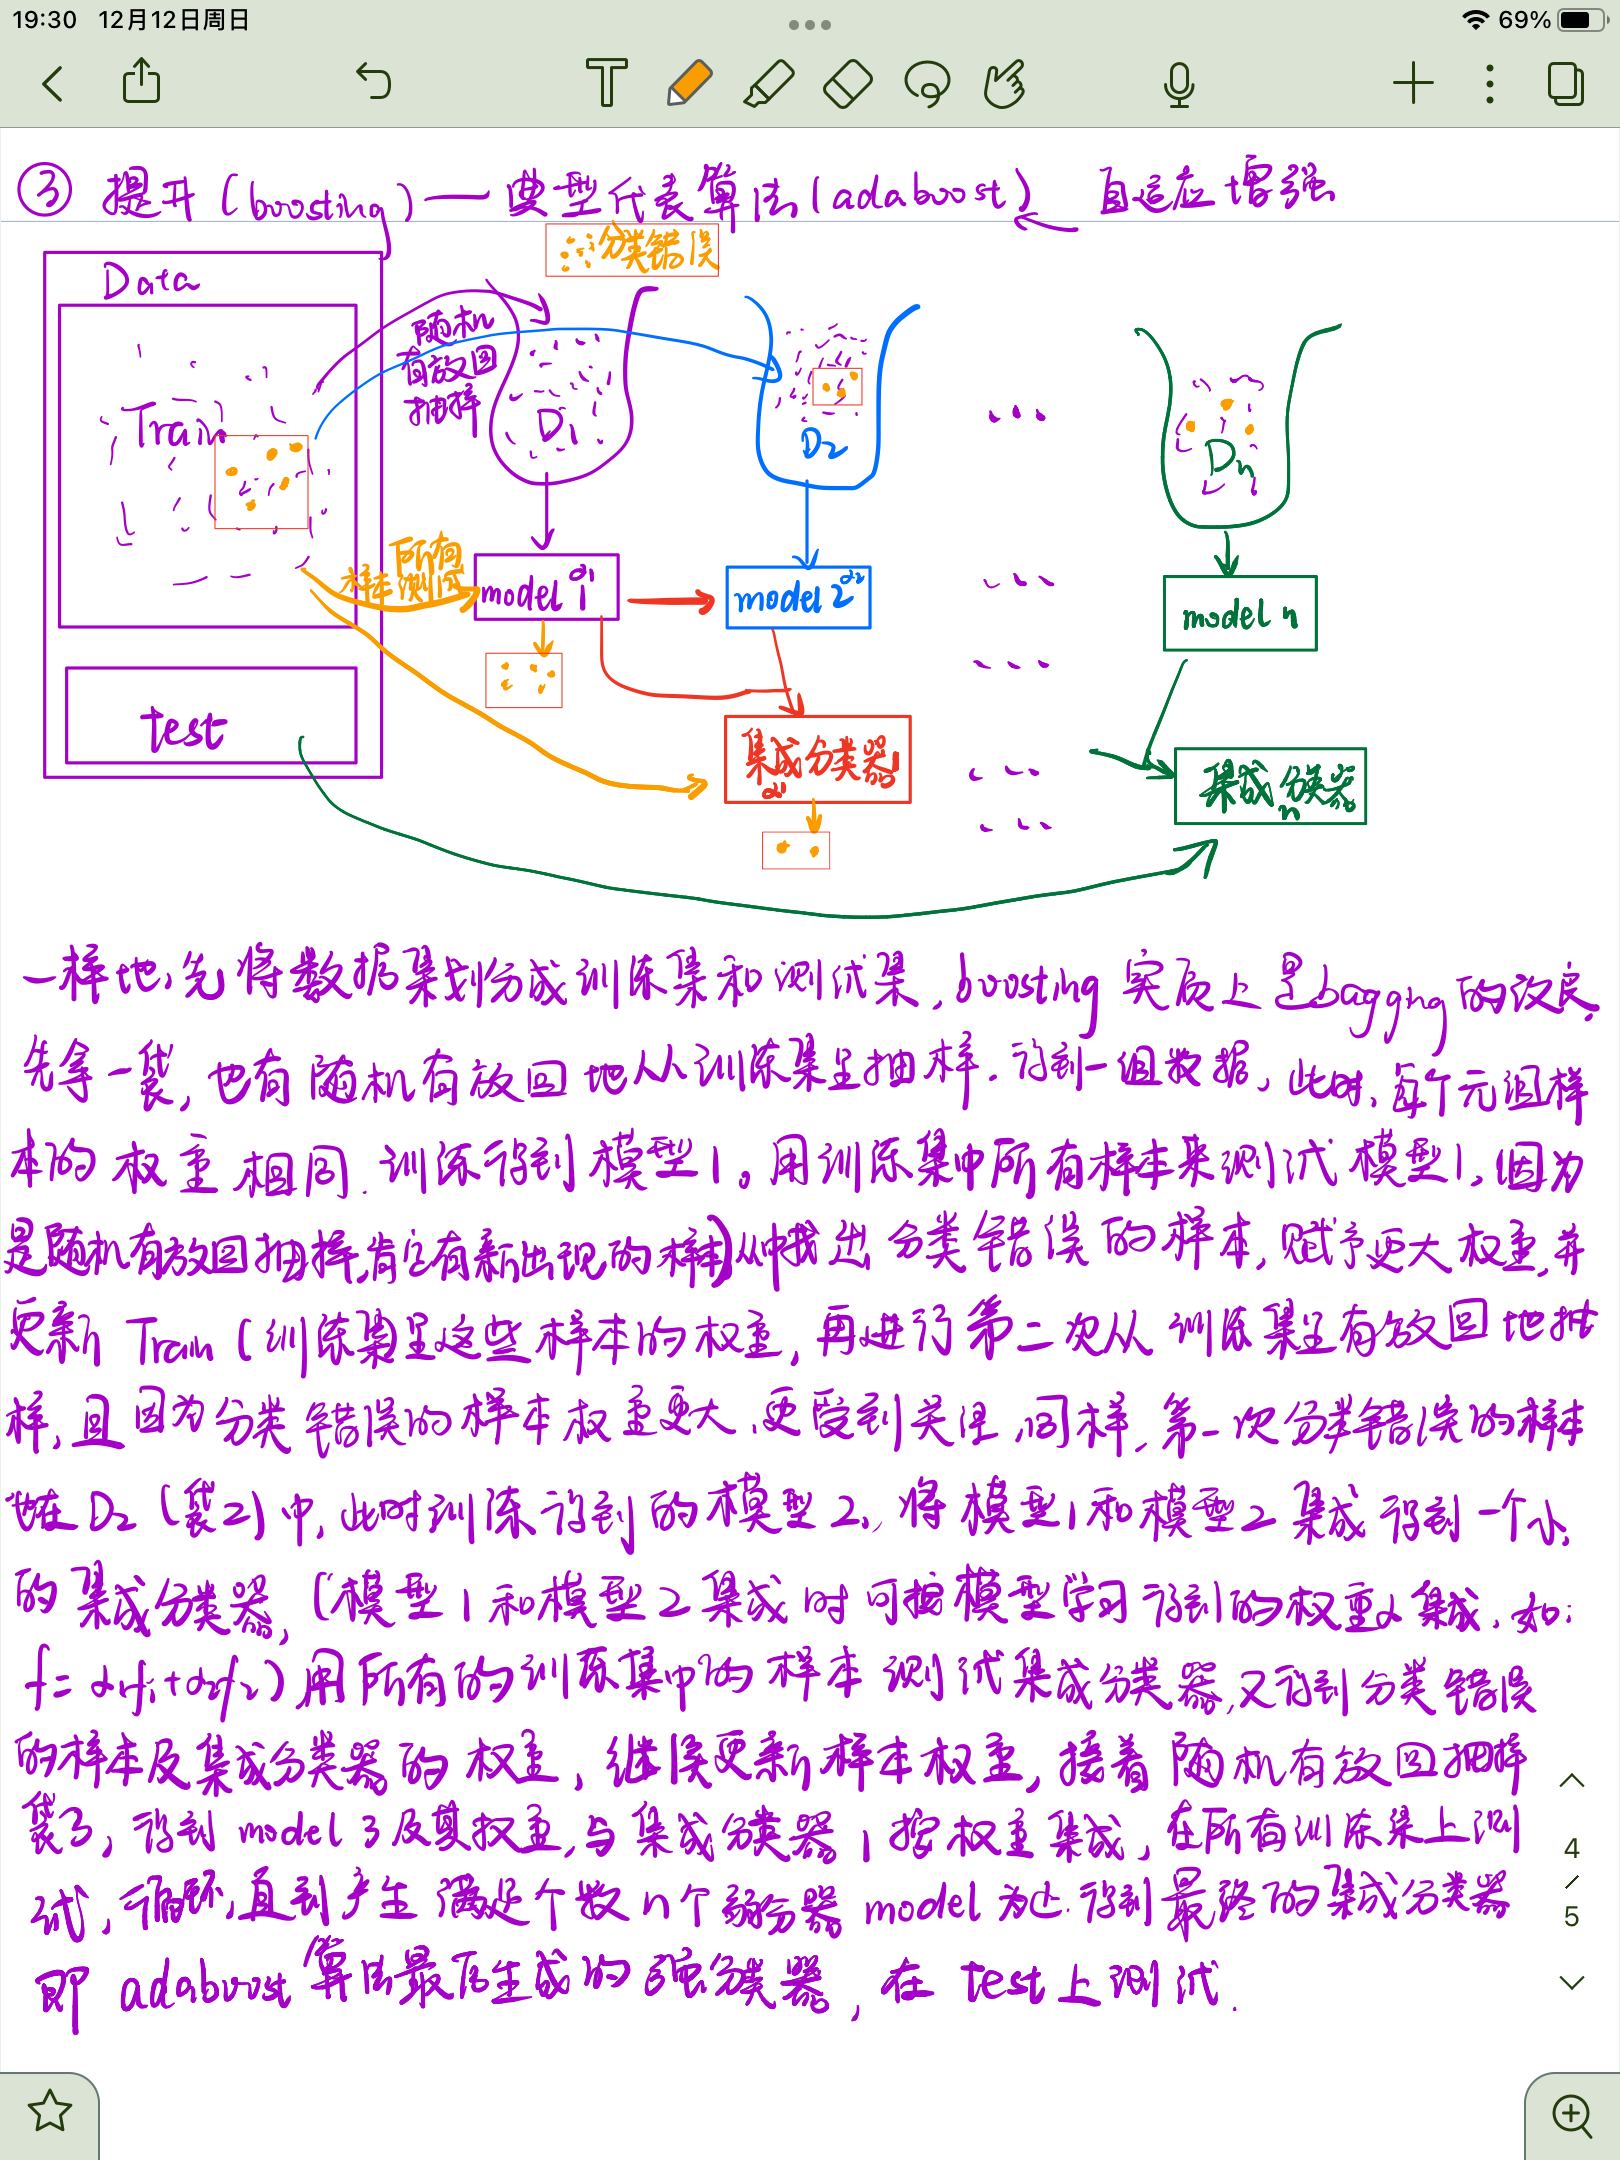 19:30 12月12日周日
69%
③ 提升(boosting)——典型代表算法(adaboost) 自适应增强
:::分类错误
Data
Train
test
随机
有放回
抽样
D₁
D₂
Dn
所有
样本测试
model 1 α₁
model 2 α₂
model n
集成分类器1
α1
集成分类器
n
一样地,先将数据集划分成训练集和测试集,boosting 实质上是bagging的改良.
先拿一袋,也有随机有放回地从训练集里抽样.得到一组数据,此时,每个元组样
本的权重相同.训练得到模型1。用训练集中所有样本来测试模型1,因为
是随机有放回抽样,肯定有新出现的样本)从中找出分类错误的样本,赋予更大权重,并
更新 Train(训练集)里这些样本的权重,再进行第二次从训练集里有放回地抽
样,且因为分类错误的样本权重更大,更受到关注,同样,第一次分类错误的样本
也在 D₂(袋2)中,此时训练得到的模型2,将模型1和模型2集成得到一个小
的集成分类器,(模型1和模型2集成时可按模型学习得到的权重α集成,如:
f=α₁f₁+α₂f₂)用所有的训练集中的样本测试集成分类器,又得到分类错误
的样本及集成分类器的权重,继续更新样本权重,接着随机有放回抽样
袋3,得到 model 3及其权重,与集成分类器1按权重集成,在所有训练集上测
试,循环,直到产生满足个数n个弱分器 model 为止.得到最终的集成分类器
即 adaboost 算法最后生成的强分类器,在 test上测试.
4
/
5